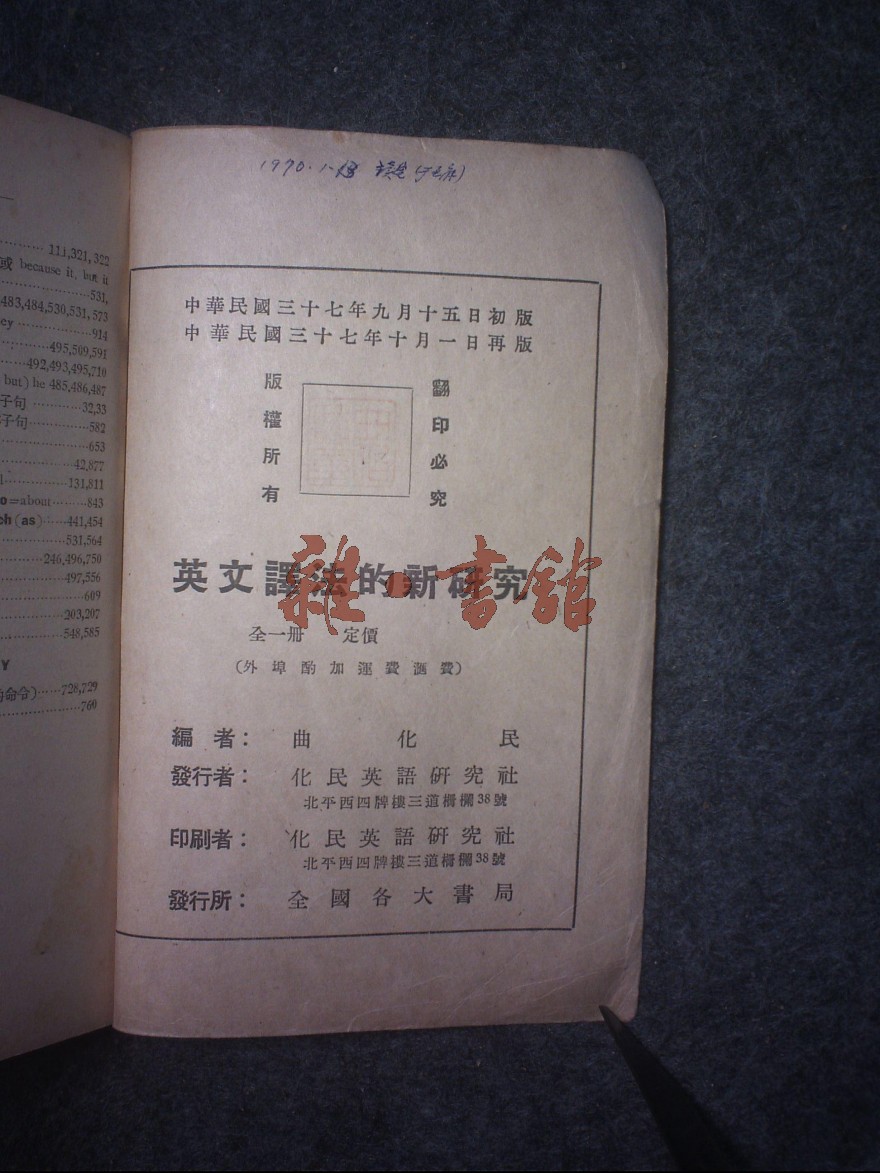 111,321,322
或 because it, but it
531,
483,484,530,531,573
914
495,509,591
492,493,495,710
but) he 485,486,487
子句 32,33
子句 582
653
42,877
131,811
=about 843
(as) 441,454
531,564
246,496,750
497,556
609
203,207
548,585
Y
命令) 728,729
760
1970.1.
中華民國三十七年九月十五日初版
中華民國三十七年十月一日再版
版權所有
翻印必究
英文譯法的新研究
雜·書館
全一冊 定價
(外埠酌加運費滙費)
編者: 曲化民
發行者: 化民英語研究社
北平西四牌樓三道柵欄38號
印刷者: 化民英語研究社
北平西四牌樓三道柵欄38號
發行所: 全國各大書局